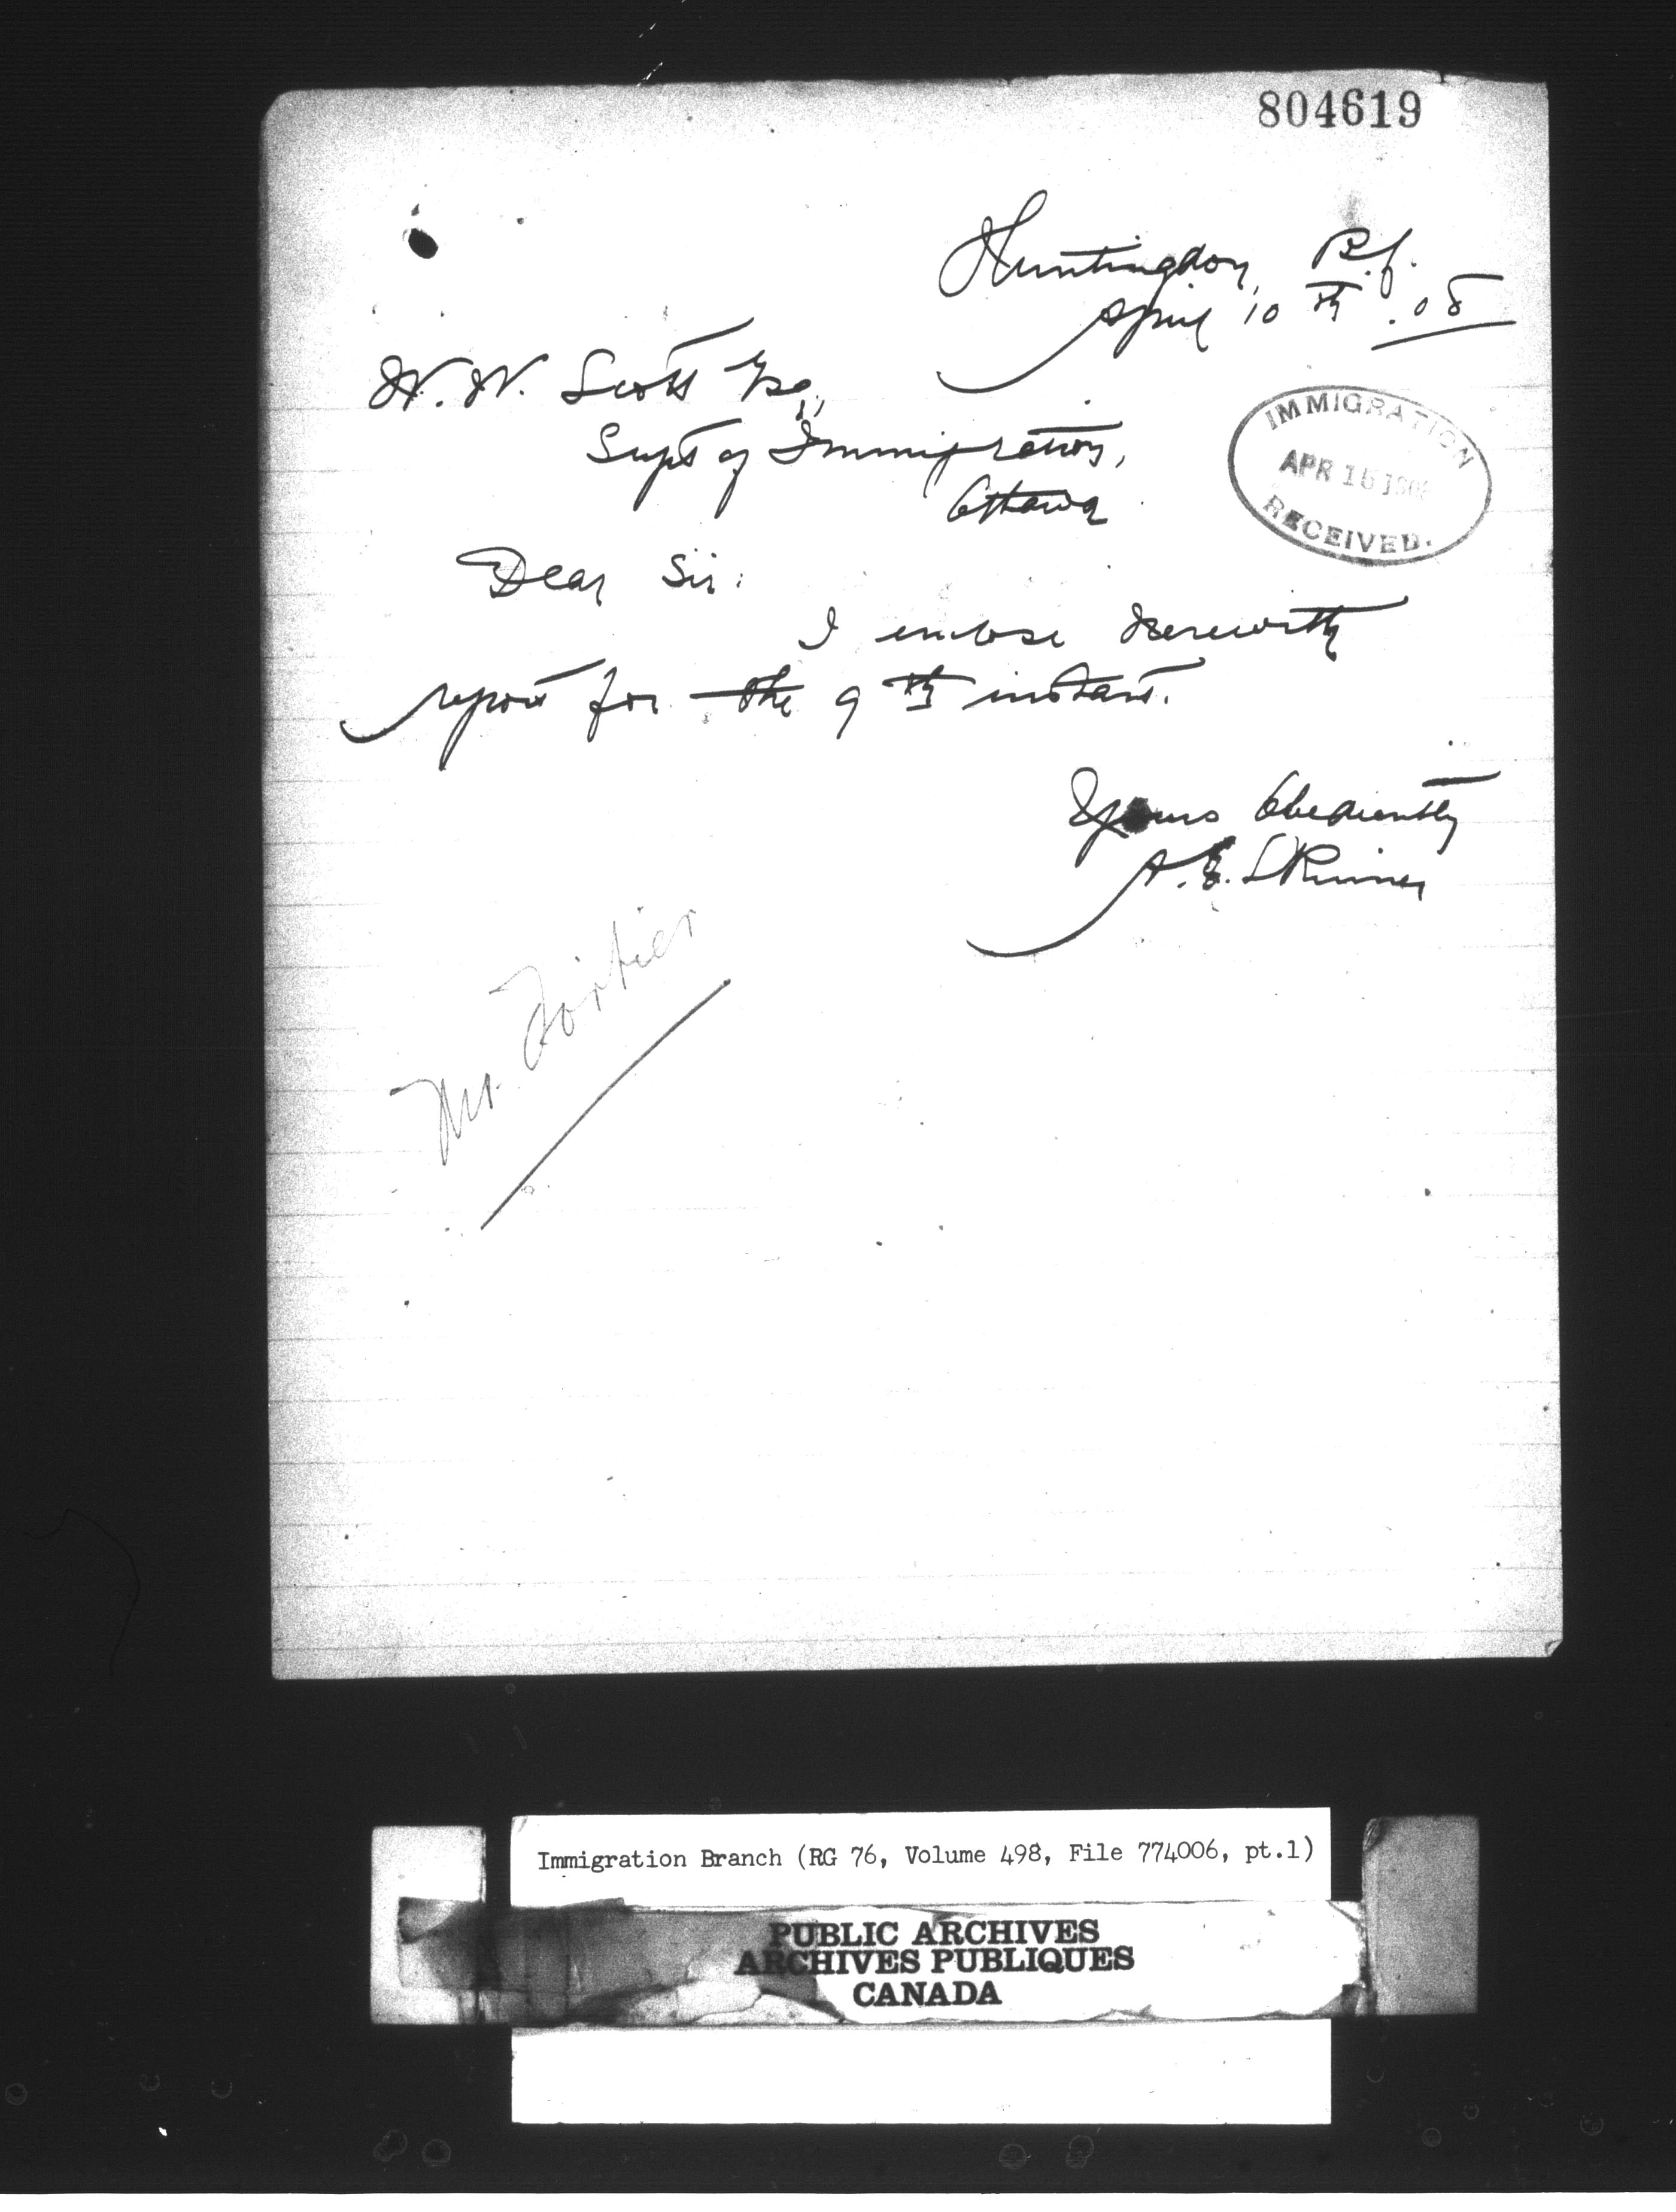 804619
Huntingdon, B.C.
April 10th .08
W. W. Scott Esq.,
Supt of Immigration,
Ottawa
IMMIGRATION
APR 15 1908
RECEIVED.
Dear Sir:
I enclose herewith
report for the 9th instant.
Yours Obediently
A. E. Skinner
Mr. Fortier
Immigration Branch (RG 76, Volume 498, File 774006, pt.1)
PUBLIC ARCHIVES
ARCHIVES PUBLIQUES
CANADA